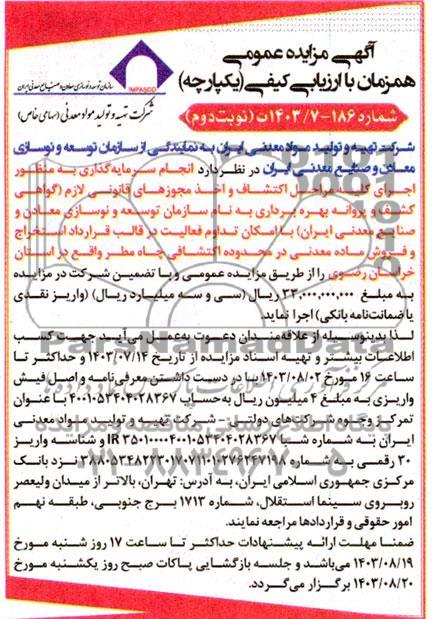 آگهی مزایده عمومی
همزمان با ارزیابی کیفی (یکپارچه)
IMPASCO
سازمان توسعه و نوسازی معادن و صنایع معدنی ایران
شرکت تهیه و تولید مواد معدنی (سهامی خاص)
شماره ۱۸۶-۱۴۰۳/۷ت (نوبت دوم)
شرکت تهیه و تولید مواد معدنی ایران به نمایندگی از سازمان توسعه و نوسازی
معادن و صنایع معدنی ایران در نظر دارد انجام سرمایه‌گذاری به منظور
اجرای کلیه مراحل اکتشاف و اخذ مجوزهای قانونی لازم (گواهی
کشف و پروانه بهره برداری به نام سازمان توسعه و نوسازی معادن و
صنایع معدنی ایران) با امکان تداوم فعالیت در قالب قرارداد استخراج
و فروش ماده معدنی در محدوده اکتشافی چاه مطر واقع در استان
خراسان رضوی را از طریق مزایده عمومی و با تضمین شرکت در مزایده
به مبلغ ۳۳,۰۰۰,۰۰۰,۰۰۰ ریال (سی و سه میلیارد ریال) (واریز نقدی
یا ضمانت‌نامه بانکی) اجرا نماید.
لذا بدینوسیله از علاقه‌مندان دعوت به‌عمل می‌آید جهت کسب
اطلاعات بیشتر و تهیه اسناد مزایده از تاریخ ۱۴۰۳/۰۷/۱۴ و حداکثر تا
ساعت ۱۶ مورخ ۱۴۰۳/۰۸/۰۲ با در دست داشتن معرفی‌نامه و اصل فیش
واریزی به مبلغ ۴ میلیون ریال به‌حساب ۴۰۰۱۰۵۳۴۰۴۰۲۸۳۶۷ با عنوان
تمرکز وجوه شرکت‌های دولتی – شرکت تهیه و تولید مواد معدنی
ایران به شماره شبا IR ۳۵۰۱۰۰۰۰۴۰۰۱۰۵۳۴۰۴۰۲۸۳۶۷ و شناسه واریز
۳۰ رقمی به شماره ۳۸۸۰۵۳۴۸۲۲۳۰۱۷۰۷۱۱۰۱۲۷۶۳۴۷۱۹۸ نزد بانک
مرکزی جمهوری اسلامی ایران، به آدرس: تهران، بالاتر از میدان ولیعصر
روبروی سینما استقلال، شماره ۱۷۱۳ برج جنوبی، طبقه نهم
امور حقوقی و قراردادها مراجعه نمایند.
ضمنا مهلت ارائه پیشنهادات حداکثر تا ساعت ۱۷ روز شنبه مورخ
۱۴۰۳/۰۸/۱۹ می‌باشد و جلسه بازگشایی پاکات صبح روز یکشنبه مورخ
۱۴۰۳/۰۸/۲۰ برگزار می‌گردد.